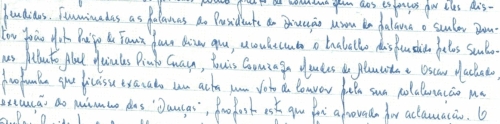 como preito de homenagem aos esforços por eles dis-
pendidos. Terminadas as palavras do Presidente da Direcção usou da palavra o senhor Dou-
tor João Mota Prego de Faria para dizer que, reconhecendo o trabalho dispensado pelos Senho-
res Alberto Abel Meireles Pinto Graça, Luis Gonzaga Mendes de Almeida e Oscar Machado,
propunha que ficasse exarado em acta um voto de louvor pela sua colaboração na
execução do número das "Danças", proposta esta que foi aprovada por aclamação. O